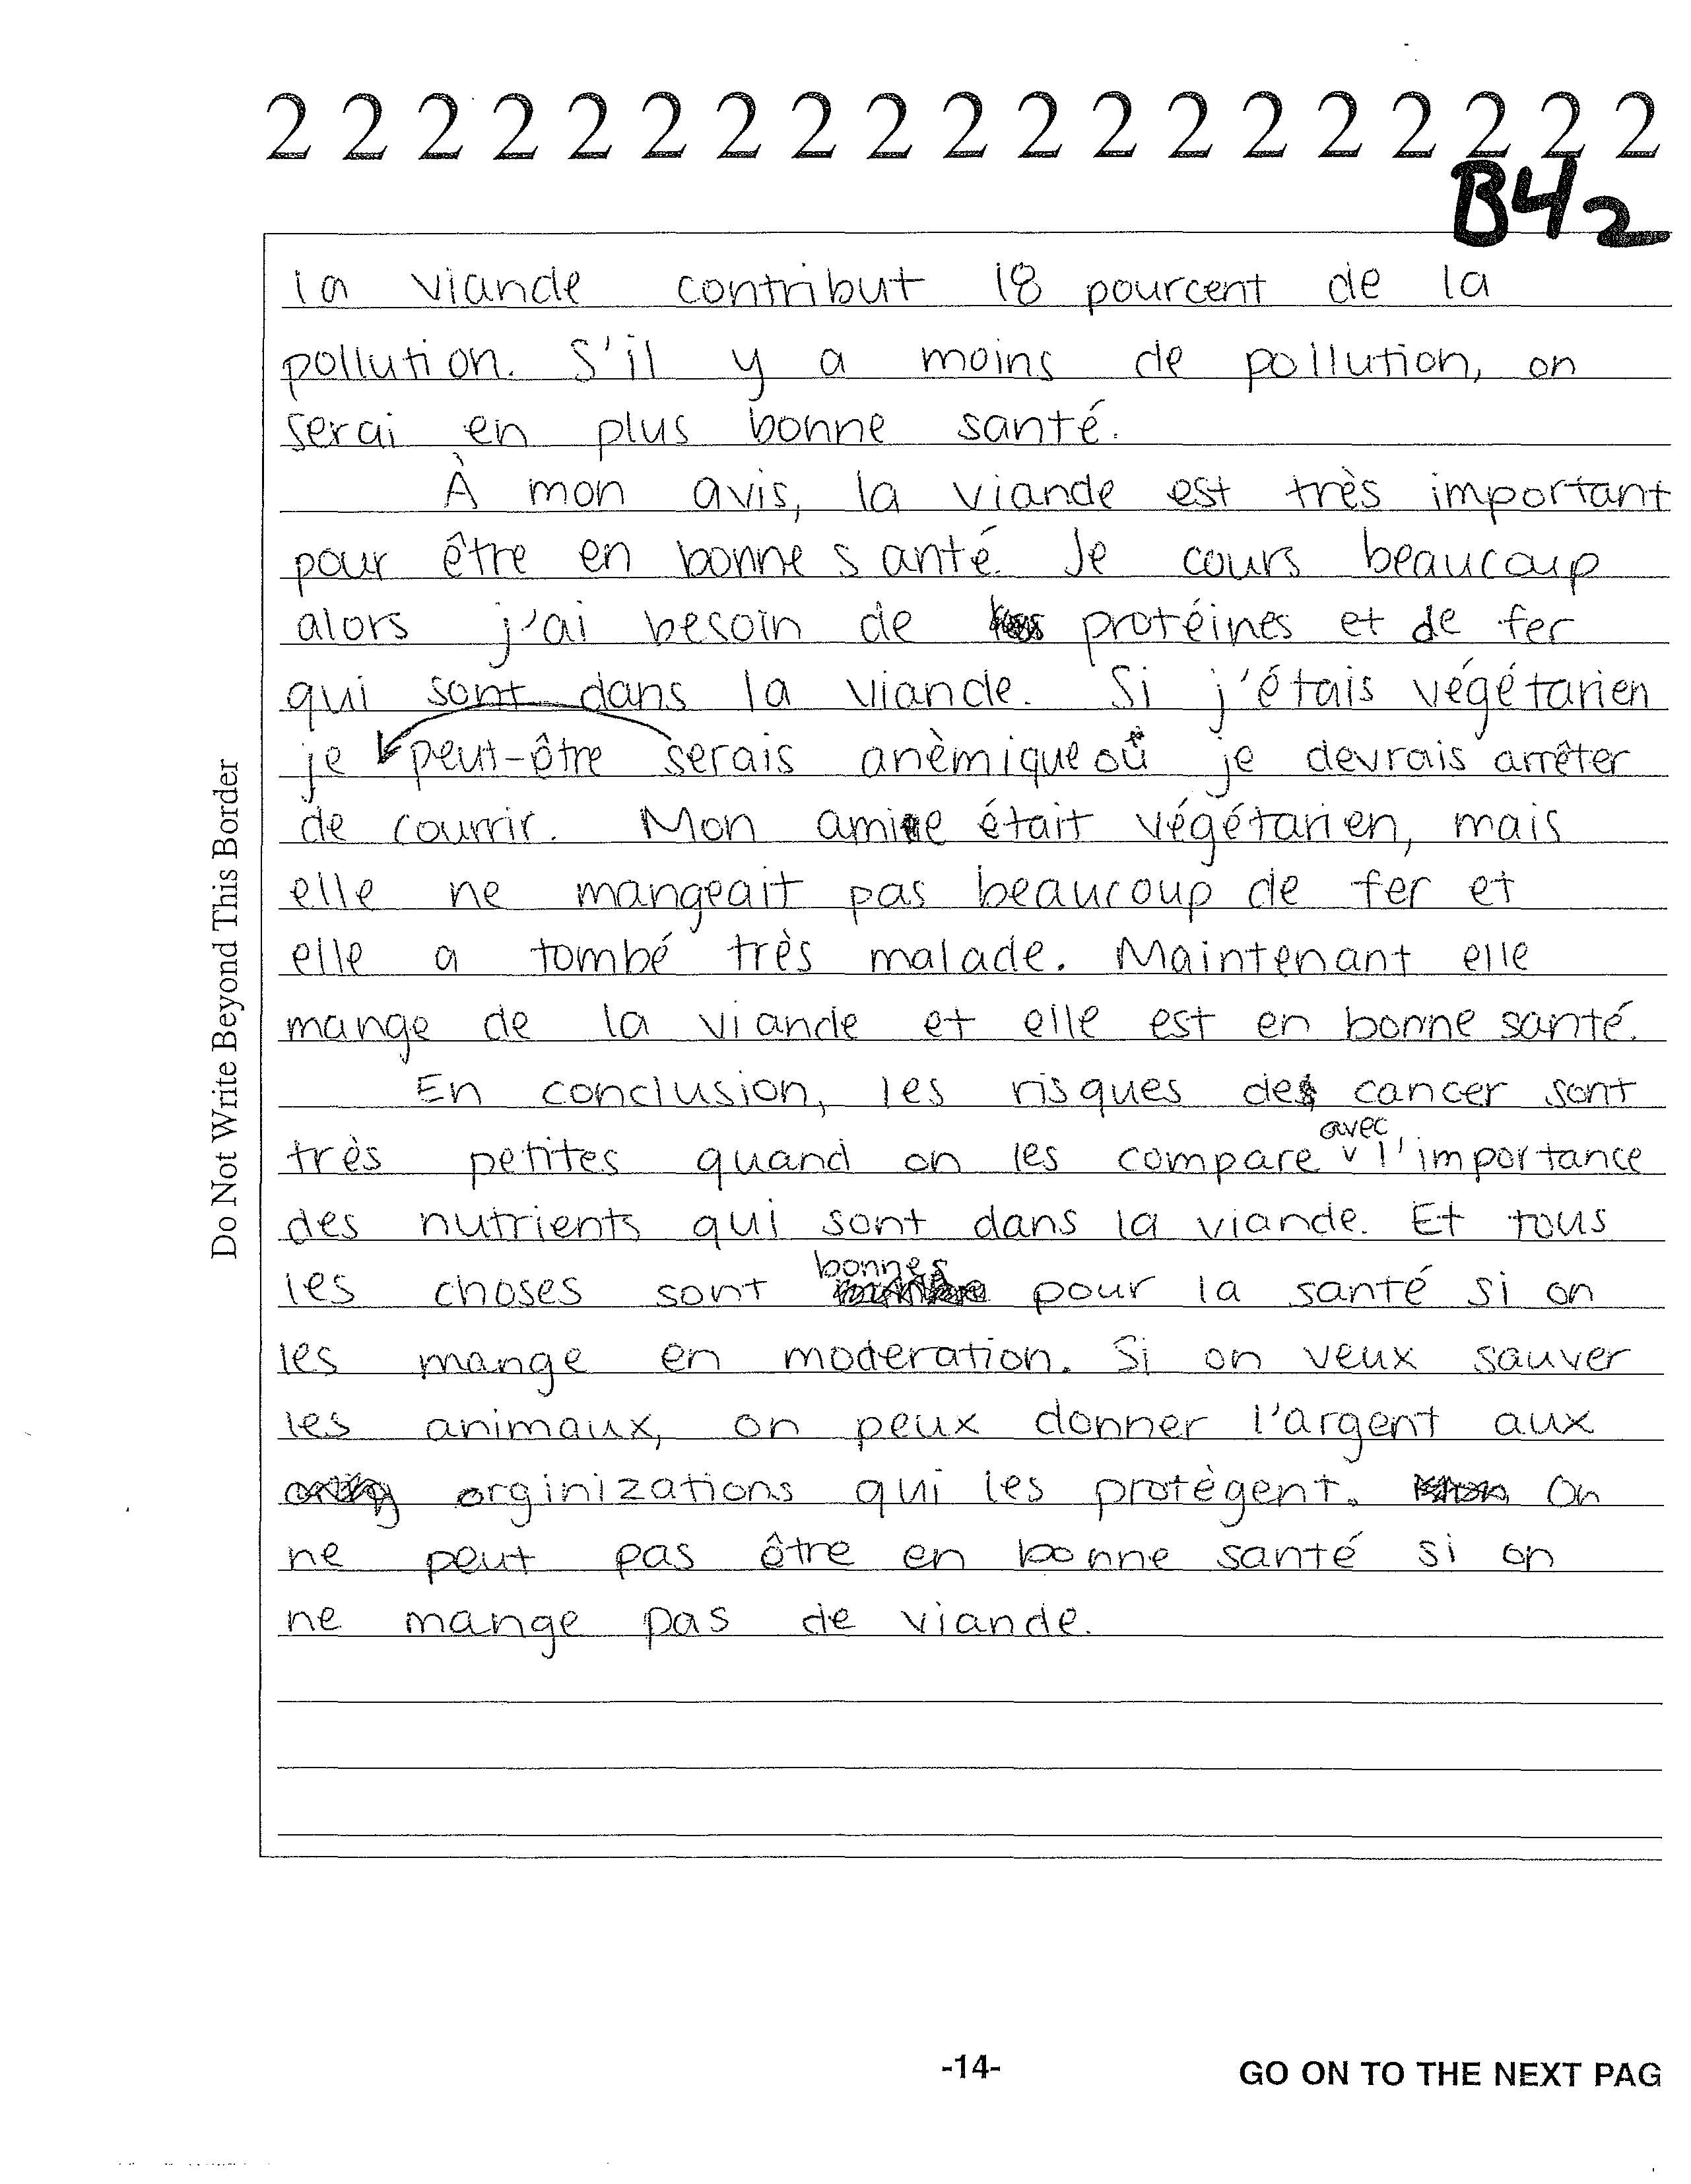 2 2 2 2 2 2 2 2 2 2 2 2 2 2 2 2 2 2 2
B42
la viande contribut 18 pourcent de la
pollution. S'il y a moins de pollution, on
serai en plus bonne santé.
À mon avis, la viande est très important
pour être en bonne santé. Je cours beaucoup
alors j'ai besoin de protéines et de fer
qui sont dans la viande. Si j'étais végétarien
je peut-être serais anèmique où je devrais arrêter
de courrir. Mon amie était végétarien, mais
elle ne mangeait pas beaucoup de fer et
elle a tombé très malade. Maintenant elle
mange de la viande et elle est en bonne santé.
En conclusion, les risques de cancer sont
très petites quand on les compare avec l'importance
des nutrients qui sont dans la viande. Et tous
les choses sont bonnes pour la santé si on
les mange en moderation. Si on veux sauver
les animaux, on peux donner l'argent aux
orginizations qui les protègent. On
ne peut pas être en bonne santé si on
ne mange pas de viande.
Do Not Write Beyond This Border
-14-
GO ON TO THE NEXT PAG